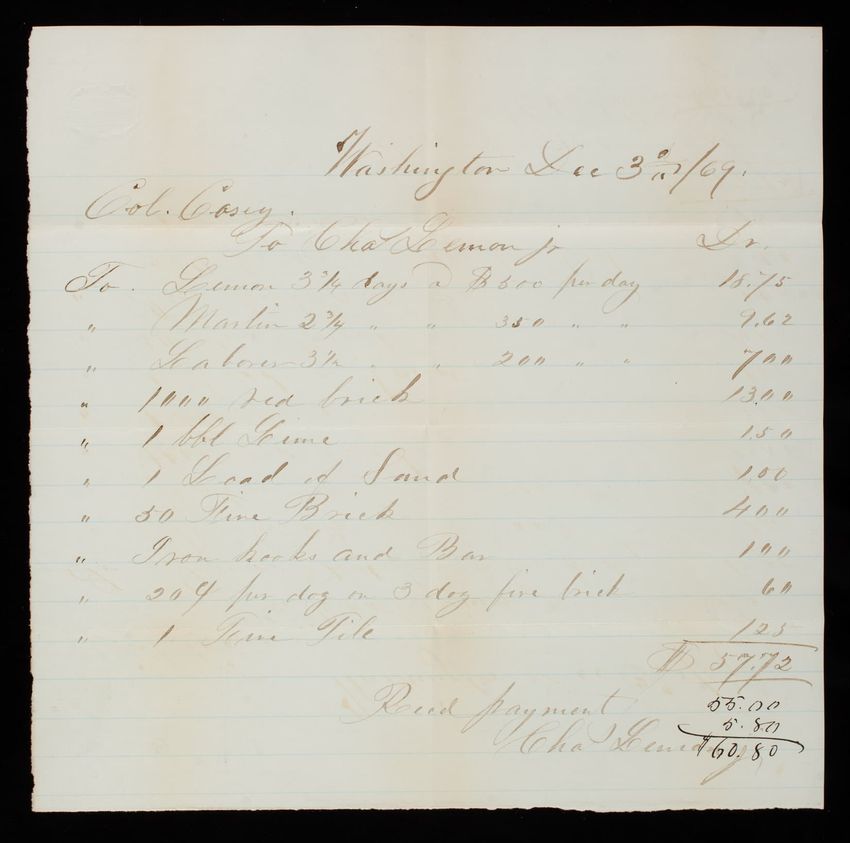 Washington Dec 30th/69.
Col. Casey.
To Chas Lemon jr Dr.
To Lemon 3 3/4 days a $500 per day 18.75
" Martin 2 3/4 " " 350 " " 9.62
" Laborer 3 1/2 " " 200 " " 700
" 1000 red brick 13.00
" 1 bbl Lime 1.50
" 1 Load of Sand 1.00
" 50 Fire Brick 400
" Iron hooks and Bar 100
" 20¢ per dog on 3 dog fire brick 60
" 1 Fire Tile 125
$ 57.72
Recd payment 55.00
5.80
Chas Lemon jr $60.80